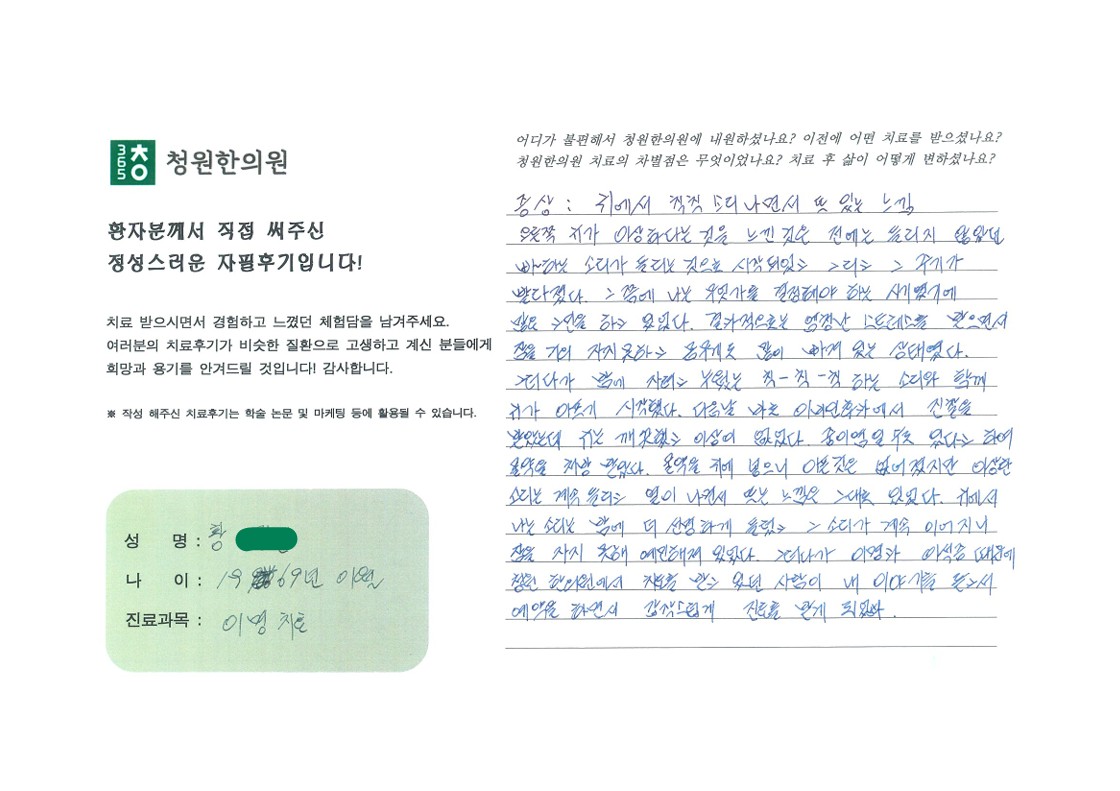 365 청
청원한의원
환자분께서 직접 써주신
정성스러운 자필후기입니다!
치료 받으시면서 경험하고 느꼈던 체험담을 남겨주세요.
여러분의 치료후기가 비슷한 질환으로 고생하고 계신 분들에게
희망과 용기를 안겨드릴 것입니다! 감사합니다.
※ 작성 해주신 치료후기는 학술 논문 및 마케팅 등에 활용될 수 있습니다.
성 명 : 황
나 이 : 1969년 이월
진료과목 : 이명 치료
어디가 불편해서 청원한의원에 내원하셨나요? 이전에 어떤 치료를 받으셨나요?
청원한의원 치료의 차별점은 무엇이었나요? 치료 후 삶이 어떻게 변하셨나요?
증상 : 귀에서 칙칙 소리 나면서 떠 있는 느낌
오른쪽 귀가 이상하다는 것을 느낀 것은 전에는 들리지 않았던
삐-하는 소리가 들리는 것으로 시작되었고 그리고 그 주기가
빨라졌다. 그 쯤에 나는 무엇가를 결정해야 하는 시기였기에
많은 고민을 하고 있었다. 결과적으로는 엄청난 스트레스를 받으면서
잠을 거의 자지 못하고 몸무게도 많이 빠져 있는 상태였다.
그러다가 밤에 자려고 누웠는데 칙-칙-칙 하는 소리와 함께
귀가 아프기 시작했다. 다음날 바로 이비인후과에서 진찰을
받았는데 귀는 깨끗했고 이상이 없었다. 중이염일 수도 있다고 하여
물약을 처방 받았다. 물약을 귀에 넣으니 아픈것은 없어졌지만 이상한
소리는 계속 들리고 열이 나면서 뜨는 느낌은 그대로 있었다. 귀에서
나는 소리는 밤에 더 선명하게 들렸고 그 소리가 계속 이어지니
잠을 자지 못해 예민해져 있었다. 그러다가 이명과 이석증 때문에
청원 한의원에서 치료를 받고 있던 사람이 내 이야기를 듣고서
예약을 하면서 갑작스럽게 진료를 받게 되었다.